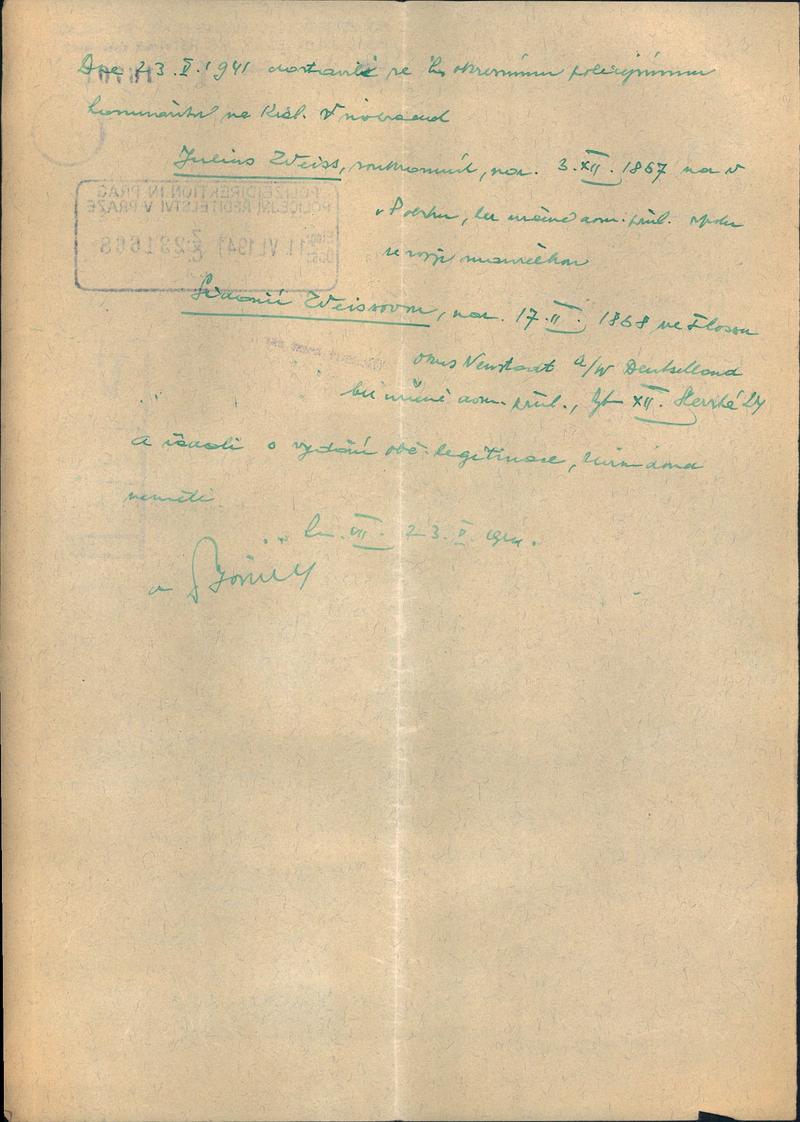 Dne 23.V.1941 dostavili se k okresnímu policejnímu
komisariátu na Král. Vinohradech
Julius Weiss, soukromník, nar. 3.XII.1867 na v
v Polsku, bez určené dom. přísl. spolu
se svojí manželkou
Sidonií Weissovou, nar. 17.II.1868 ve Flossu
okres Neustadt a/W Deutschland
bez určené dom. přísl., byt XII. 24
a žádali o vydání obč. legitimace, jiných dokl.
neměli.
23.V.1941.
POLIZEIDIREKTION IN PRAG
POLICEJNÍ ŘEDITELSTVÍ V PRAZE
Eing.
Došl. 11.VI.1941 Z. Č. 231668